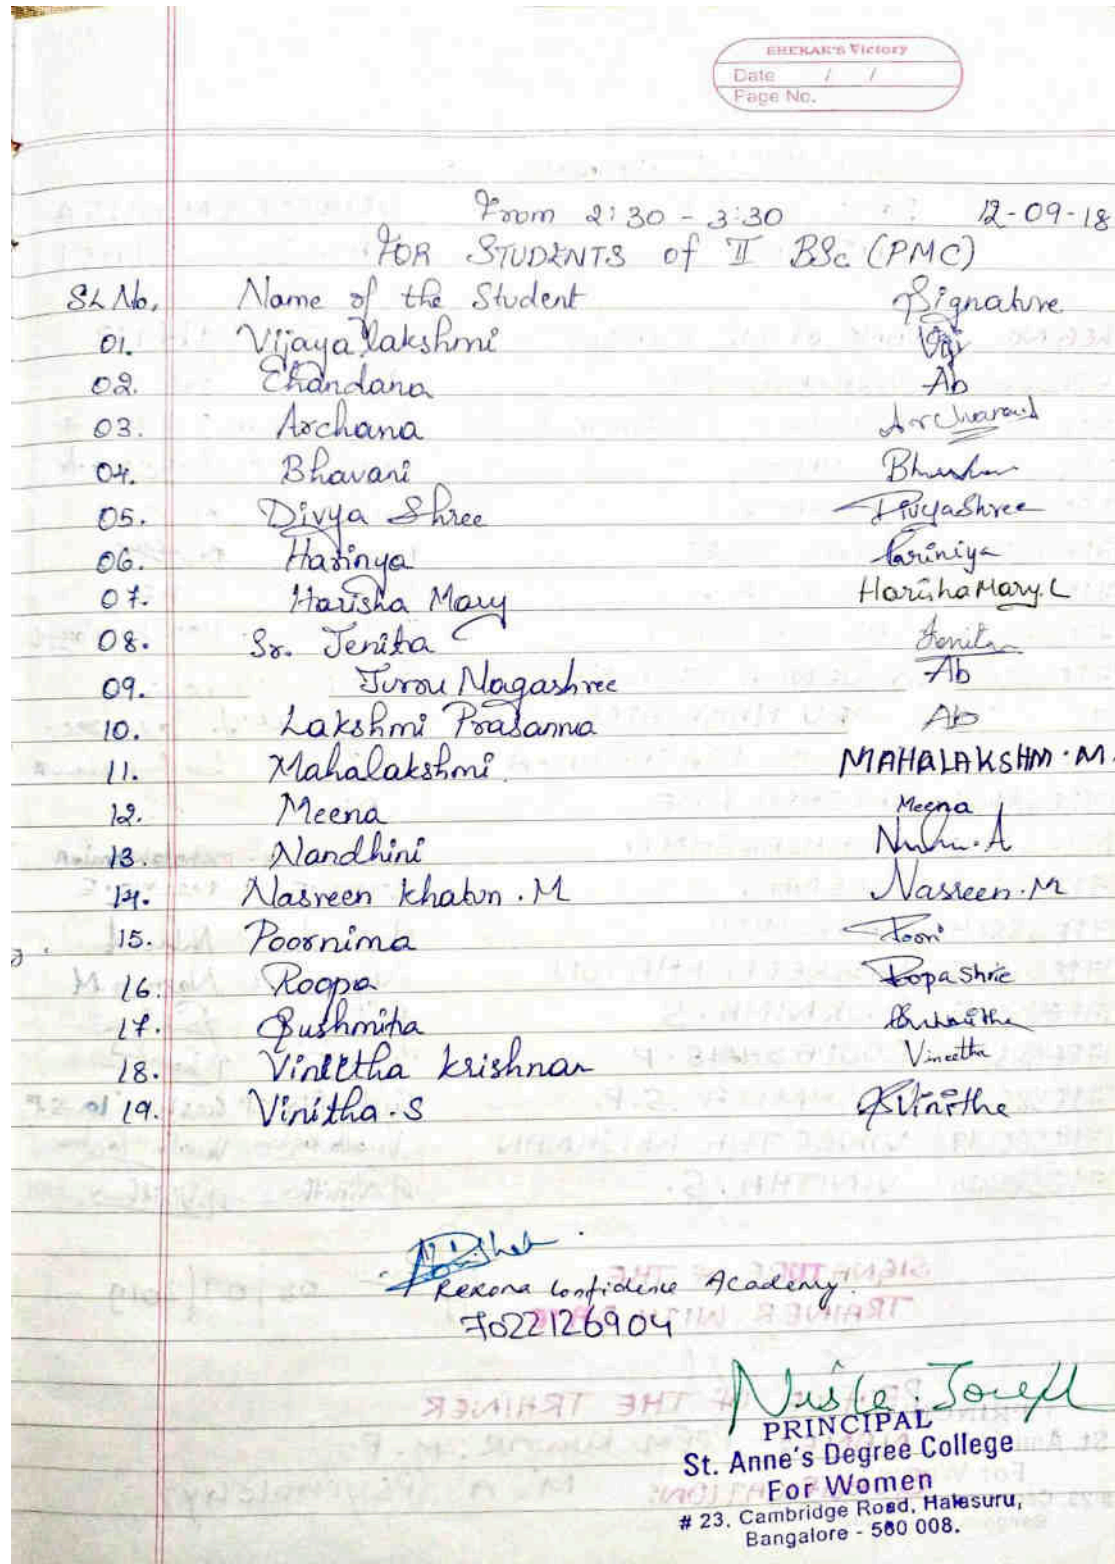 SHEKAR'S Victory
Date / /
Page No.
From 2:30 - 3:30 12-09-18
FOR STUDENTS of II BSc (PMC)
SL No. Name of the Student Signature
01. Vijaya Lakshmi
02. Chandana Ab
03. Archana
04. Bhavani
05. Divya Shree DivyaShree
06. Harinya Hariniya
07. Harisha Mary Harisha Mary. L
08. Sr. Jenita Jenita
09. Nagashree Ab
10. Lakshmi Prasanna Ab
11. Mahalakshmi MAHALAKSHMI . M.
12. Meena Meena
13. Nandhini
14. Nasreen Khatun . M Nasreen . M
15. Poornima Poori
16. Roopa Roopashree
17. Sushmitha
18. Vineetha Krishnan Vineetha
19. Vinitha . S Vinitha
Rexona Confidence Academy.
7022126904
PRINCIPAL
St. Anne's Degree College
For Women
# 23, Cambridge Road, Halasuru,
Bangalore - 560 008.